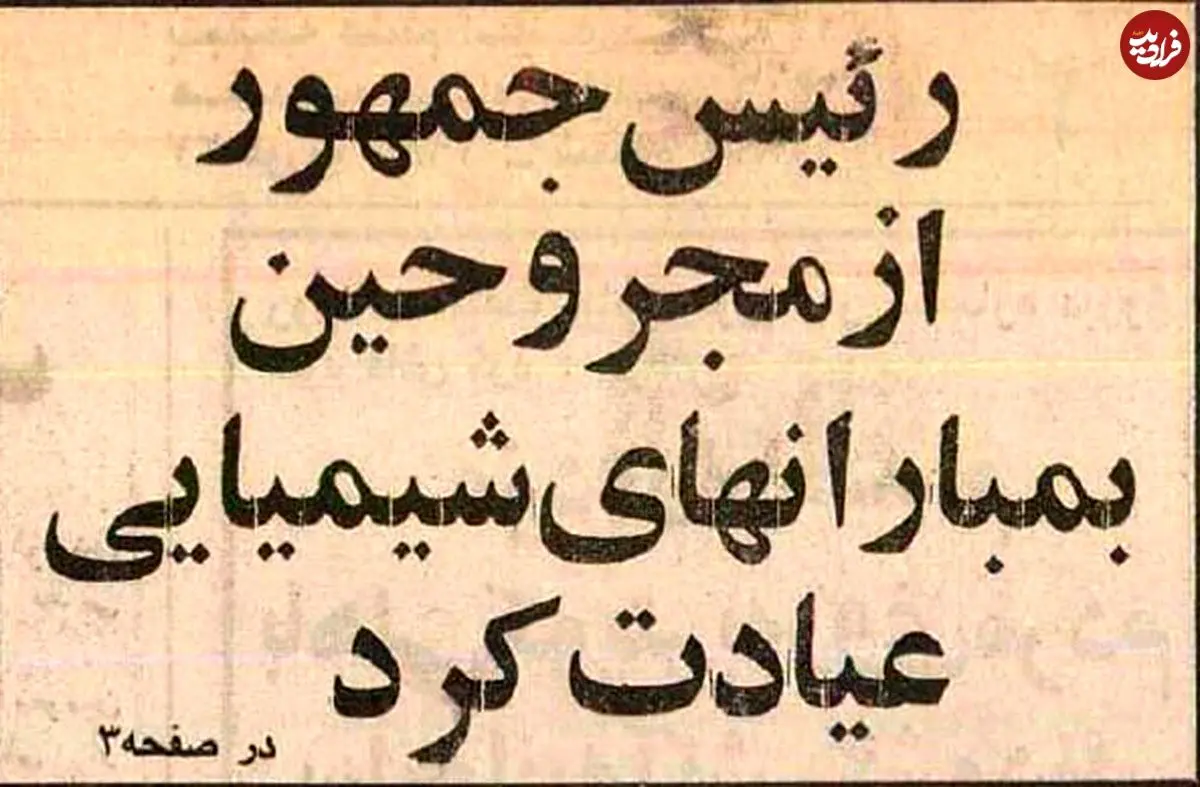 رئیس جمهور
از مجروحین
بمبارانهای شیمیایی
عیادت کرد
در صفحه۳
فرادید